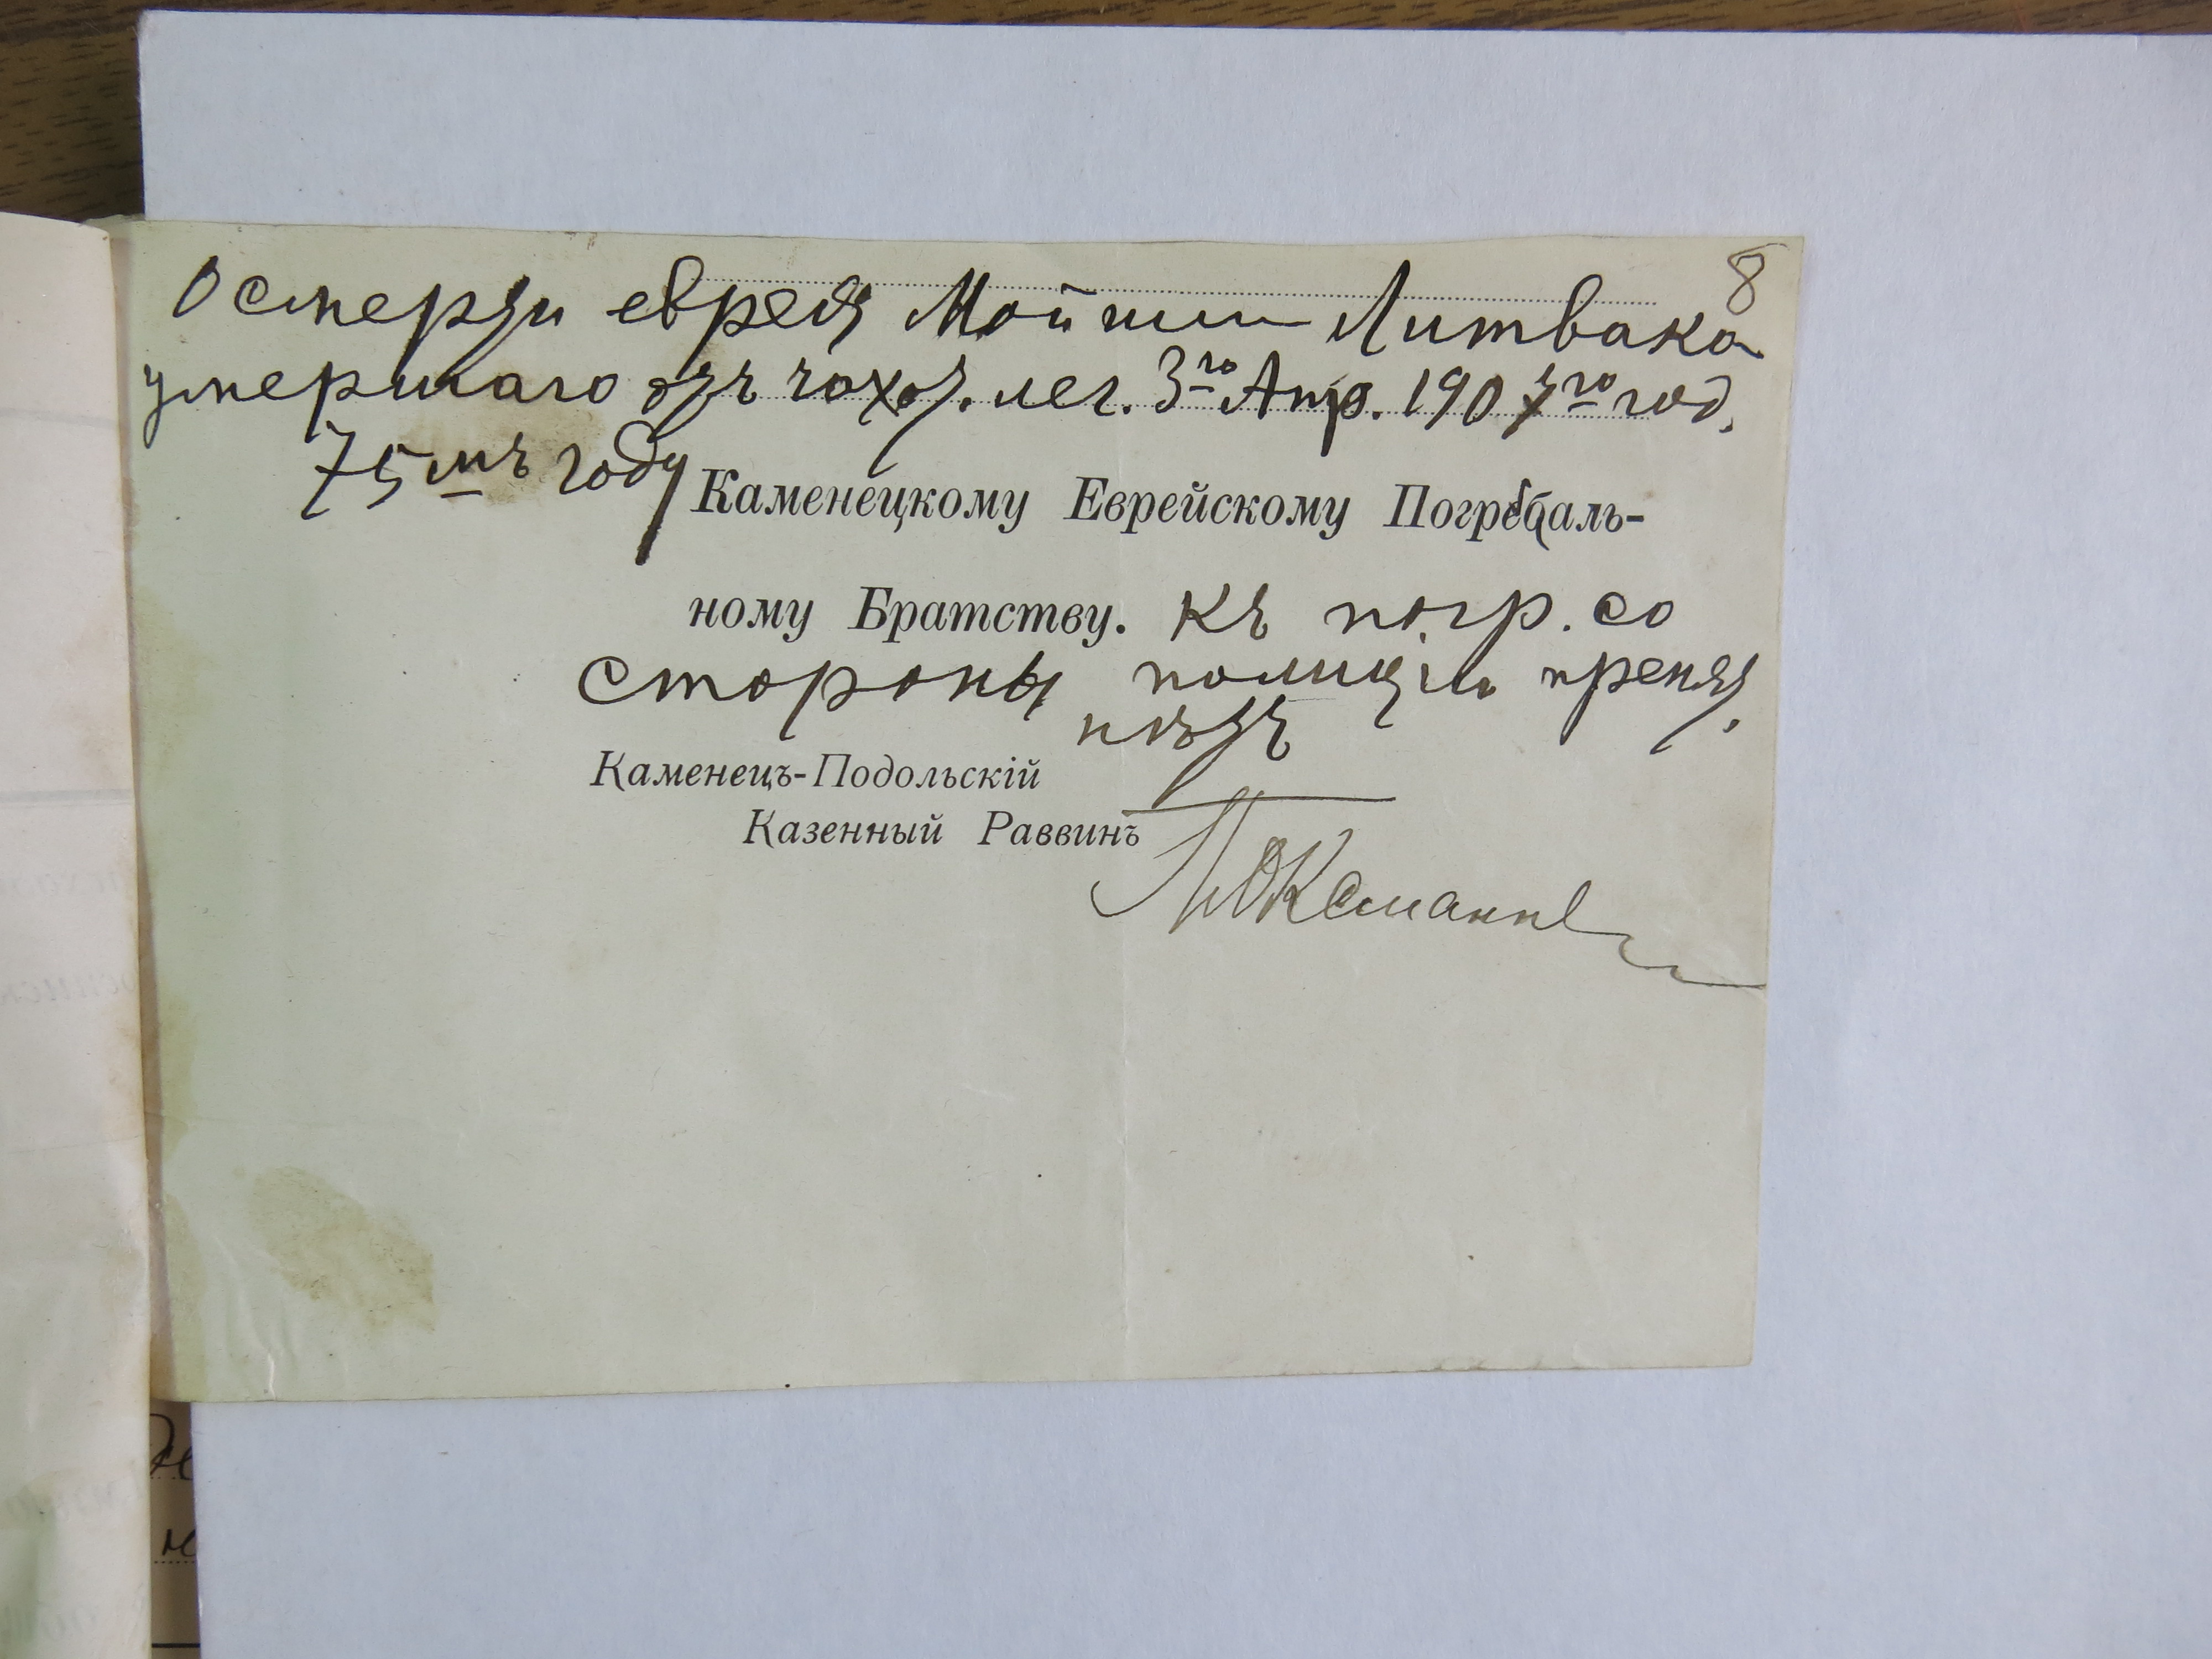 8
О смерти еврея Мойши Литвака
умершаго отъ чахот. лег. 3го Апр. 1907го год.
75мъ году
Каменецкому Еврейскому Погребаль-
ному Братству. Къ погр. со
стороны полиціи препят.
нѣтъ
Каменецъ-Подольскій
Казенный Раввинъ